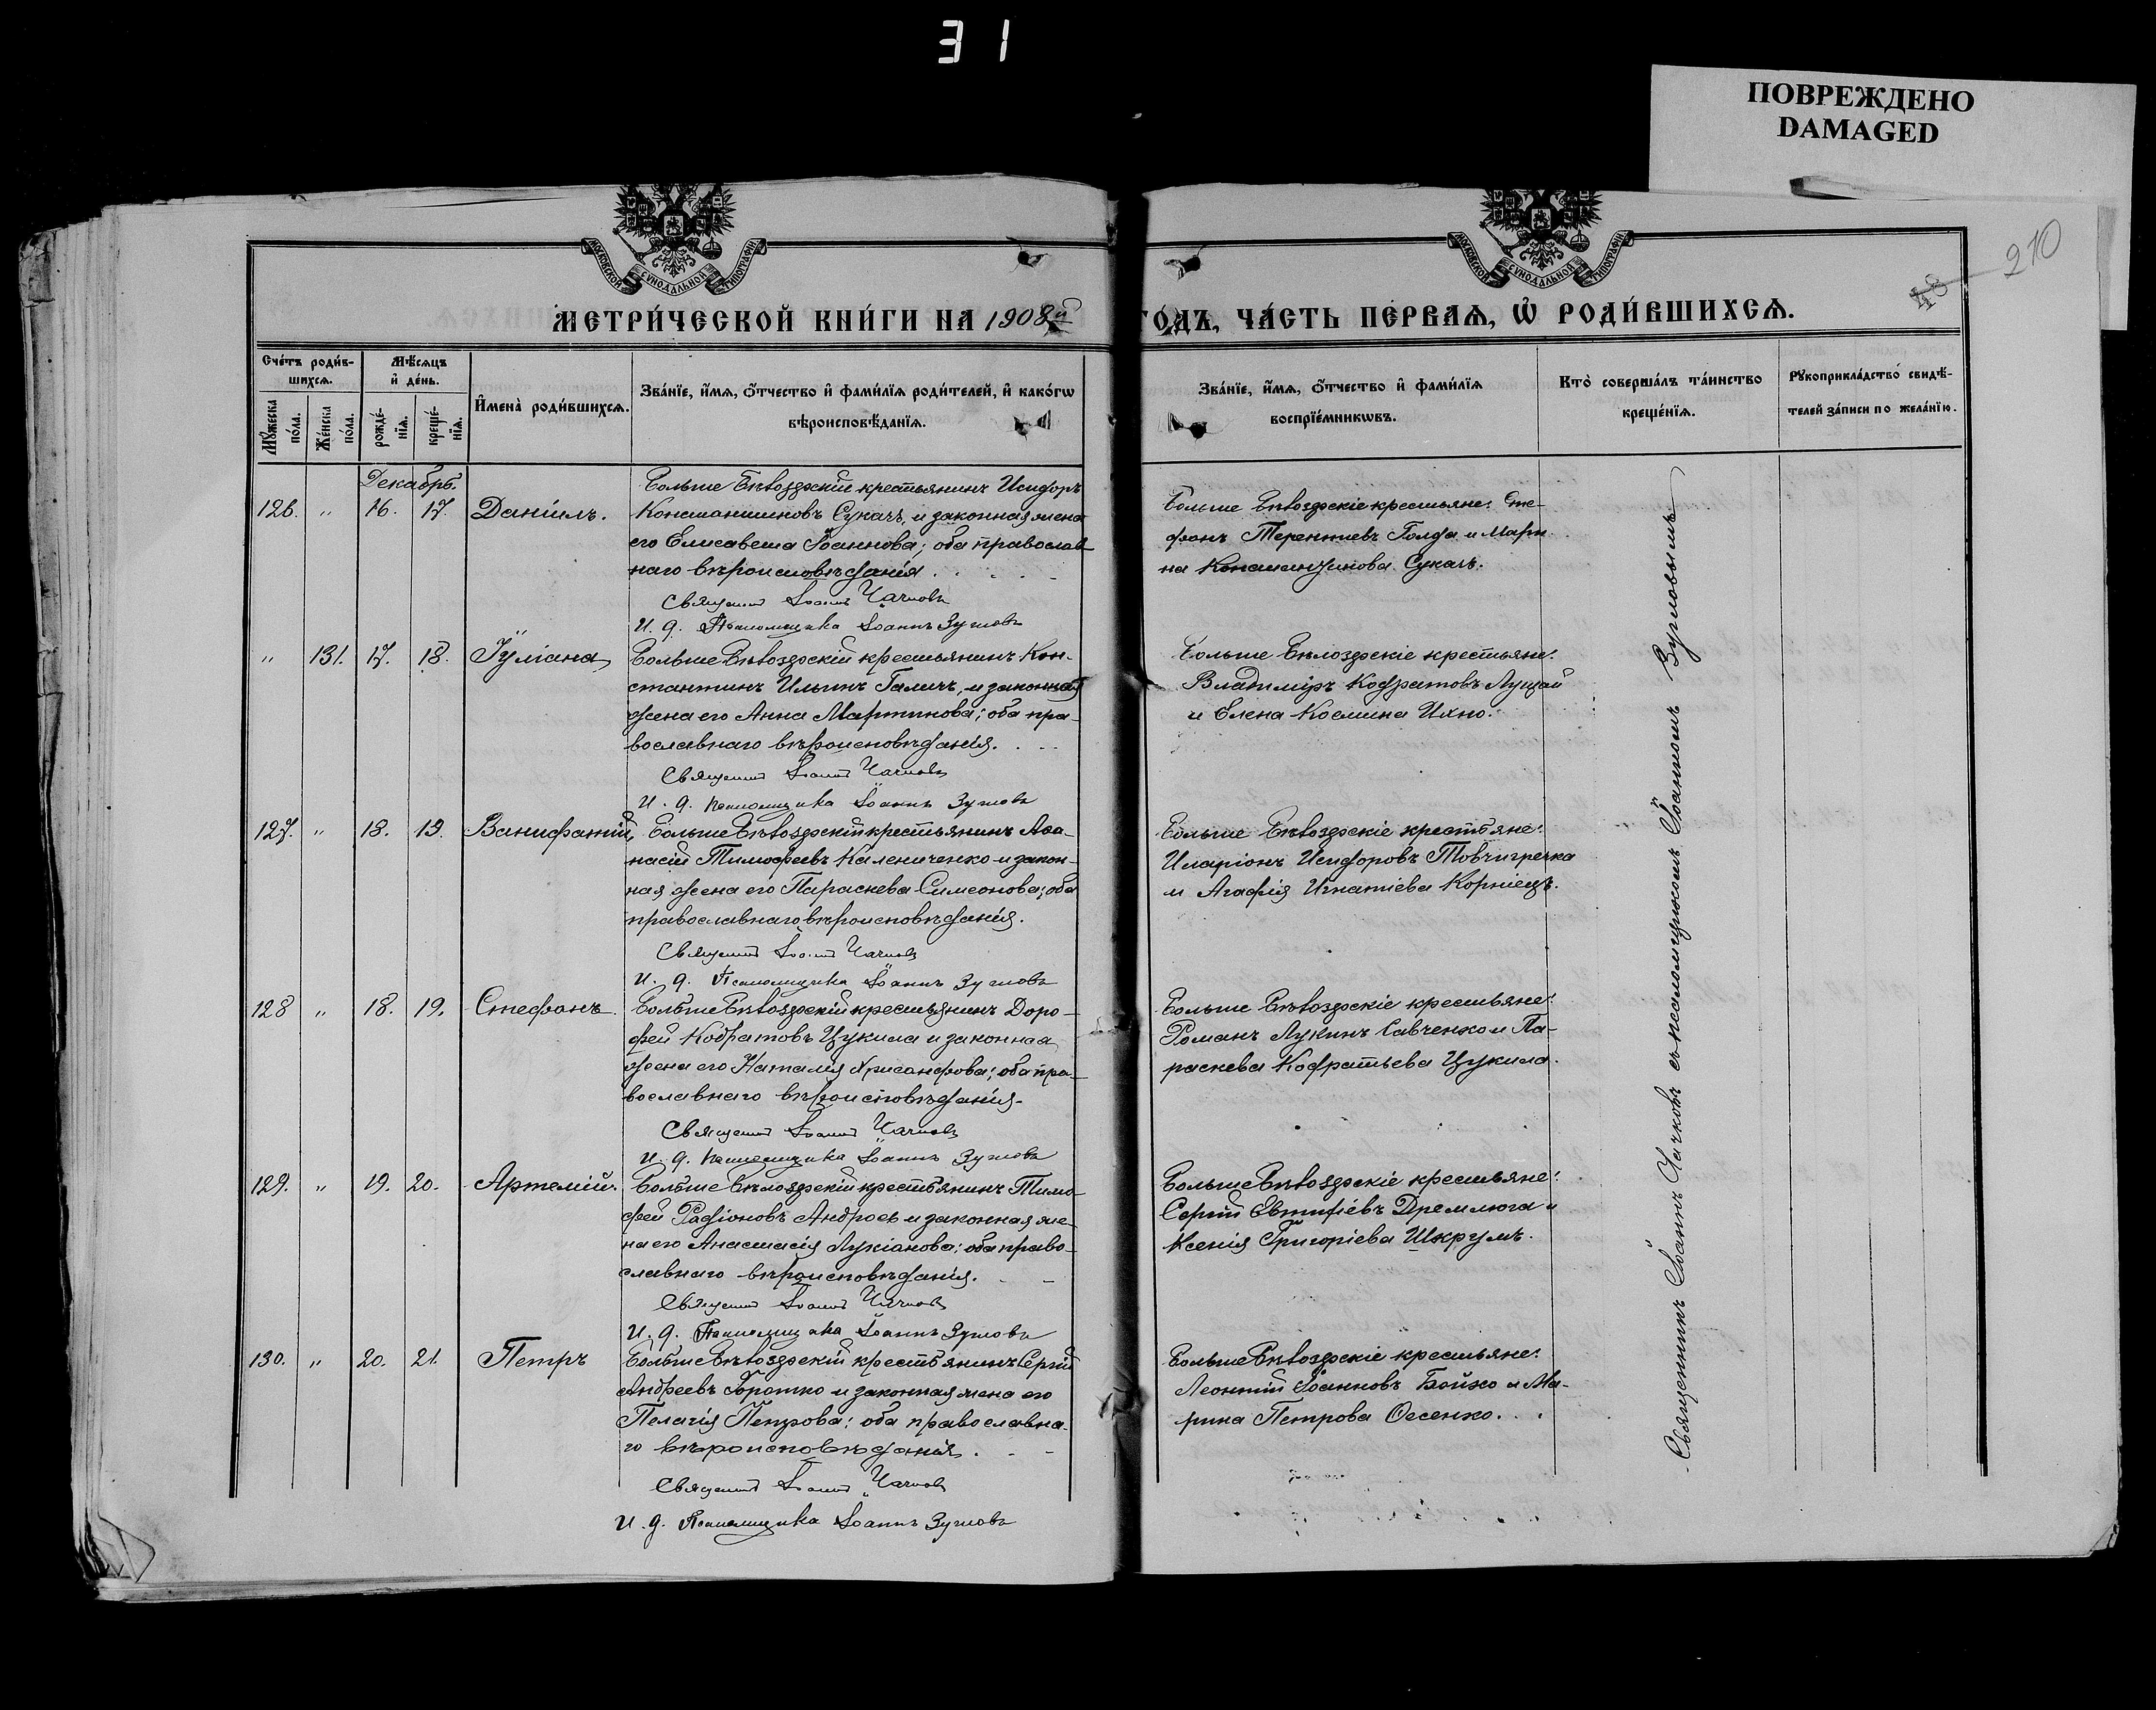 31
ПОВРЕЖДЕНО
DAMAGED
210
48
МОСКОВСКОЙ СѴНОДАЛЬНОЙ ТИПОГРАФІИ
МОСКОВСКОЙ СѴНОДАЛЬНОЙ ТИПОГРАФІИ
МЕТРИ́ЧЕСКОЙ КНИ́ГИ НА 1908й ГО́ДЪ, ЧА́СТЬ ПЕ́РВАѦ, Ѡ҆ РОДИ́ВШИХСѦ.
Сче́тъ роди́в-
шихсѧ.
Мѣ́сѧцъ
и҆ де́нь.
Мꙋ́жеска по́ла.
Же́нска по́ла.
рожде́-
нїѧ.
креще́-
нїѧ.
И҆мена̀ роди́вшихсѧ.
Зва́нїе, и҆́мѧ, ѻ҆́тчество и҆ фами́лїѧ роди́телей, и҆ како́гѡ
вѣроисповѣ́данїѧ.
Зва́нїе, и҆́мѧ, ѻ҆́тчество и҆ фами́лїѧ
воспрїе́мникѡвъ.
Кто̀ соверша́лъ та́инство
креще́нїѧ.
Рꙋкоприкла́дство свидѣ́-
телей за́писи по жела́нїю.
Декабрь.
126. " 16. 17. Даніилъ.
Больше Бѣлозерскій крестьянинъ Исидоръ
Константиновъ Сукачъ, и законная жена
его Елисавета Іоаннова; оба православ-
наго вѣроисповѣданія.
Священникъ Іоаннъ Чачковъ
И. д. Псаломщика Іоаннъ Зуиовъ
Больше Бѣлозерскіе крестьяне: Сте-
фанъ Терентіевъ Голда и Мари-
на Константинова Сукачъ.
" 131. 17. 18. Іуліана
Больше Бѣлозерскій крестьянинъ Кон-
стантинъ Ильинъ Галичъ, и законная
жена его Анна Мартинова; оба пра-
вославнаго вѣроисповѣданія.
Священникъ Іоаннъ Чачковъ
И. д. псаломщика Іоаннъ Зуиовъ
Больше Бѣлозерскіе крестьяне:
Владиміръ Кодратовъ Луцай
и Елена Космина Ихно.
127. " 18. 19. Ванифатій
Больше Бѣлозерскій крестьянинъ Аѳа-
насій Тимоѳеевъ Калениченко и закон-
ная жена его Параскева Симеонова; оба
православнаго вѣроисповѣданія.
Священникъ Іоаннъ Чачковъ
И. д. Псаломщика Іоаннъ Зуиовъ
Больше Бѣлозерскіе крестьяне:
Иларіонъ Исидоровъ Товчигречка
и Агафія Игнатіева Корніецъ.
128 " 18. 19. Стефанъ
Больше Бѣлозерскій крестьянинъ Доро-
фей Кодратовъ Цукила и законная
жена его Наталія Хрисанфова; оба пра-
вославнаго вѣроисповѣданія.
Священникъ Іоаннъ Чачковъ
И. д. псаломщика Іоаннъ Зуиовъ
Больше Бѣлозерскіе крестьяне:
Романъ Лукинъ Савченко и Па-
раскева Кодратьева Цукила.
129. " 19. 20. Артемій.
Больше Бѣлозерскій крестьянинъ Тимо-
фей Радіоновъ Андросъ и законная же-
на его Анастасія Лукіанова; оба право-
славнаго вѣроисповѣданія.
Священникъ Іоаннъ Чачковъ
И. д. Псаломщика Іоаннъ Зуиовъ
Больше Бѣлозерскіе крестьяне:
Сергій Евтифіевъ Дремлюга и
Ксенія Григоріева Шкрумъ.
130. " 20. 21. Петръ
Больше Бѣлозерскій крестьянинъ Сергій
Андреевъ Коротко и законная жена его
Пелагія Петрова; оба православна-
го вѣроисповѣданія.
Священникъ Іоаннъ Чачковъ
И. д. Псаломщика Іоаннъ Зуиовъ
Больше Бѣлозерскіе крестьяне:
Леонтій Іоанновъ Бойко и Ма-
рина Петрова Осенко.
Священникъ Іоаннъ Чачковъ съ псаломщикомъ Іоанномъ Зуиовымъ